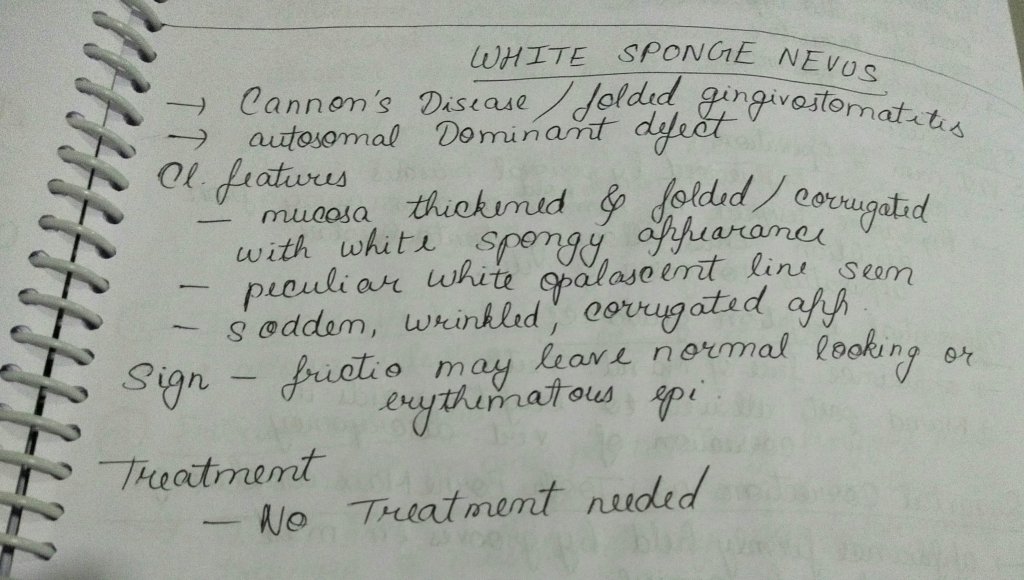 WHITE SPONGE NEVUS
→ Cannon's Disease / folded gingivostomatitis
→ autosomal Dominant defect
Cl. features
— mucosa thickened & folded / corrugated
with white spongy appearance
— peculiar white opalascent line seen
— sodden, wrinkled, corrugated app.
Sign — frictio may leave normal looking or
erythematous epi.
Treatment
— No Treatment needed